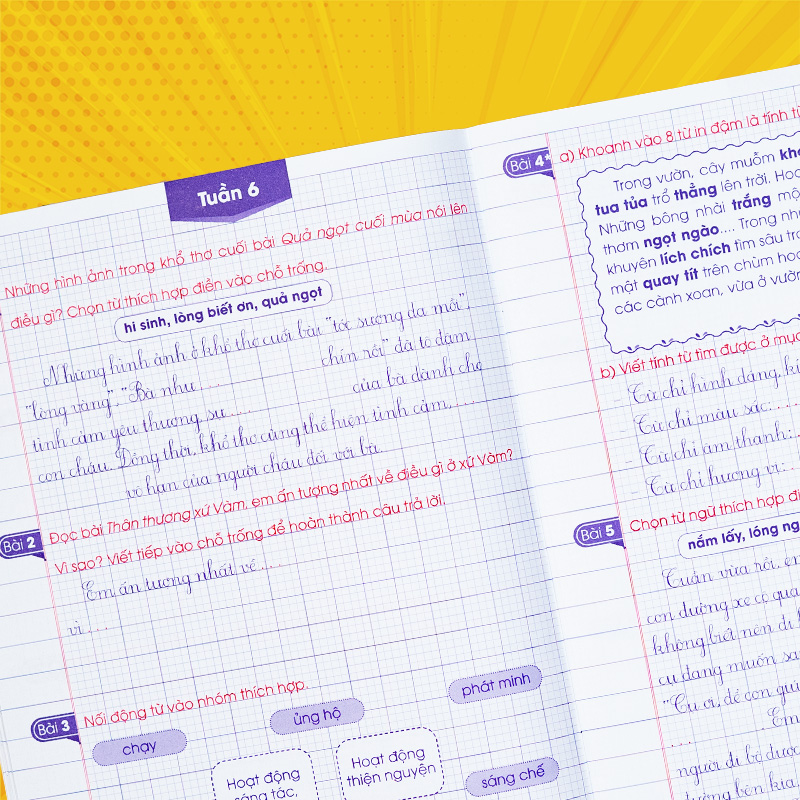 Tuần 6
Những hình ảnh trong khổ thơ cuối bài Quả ngọt cuối mùa nói lên
điều gì? Chọn từ thích hợp điền vào chỗ trống.
hi sinh, lòng biết ơn, quả ngọt
Những hình ảnh ở khổ thơ cuối bài "tóc sương da mồi",
"lòng vàng", "Bà như ... chín rồi" đã tô đậm
tình cảm yêu thương, sự .... của bà dành cho
con cháu. Đồng thời, khổ thơ cũng thể hiện tình cảm, ...
vô hạn của người cháu đối với bà.
Bài 2
Đọc bài Thân thương xứ Vàm, em ấn tượng nhất về điều gì ở xứ Vàm?
Vì sao? Viết tiếp vào chỗ trống để hoàn thành câu trả lời.
Em ấn tượng nhất về ....
vì ....
Bài 3
Nối động từ vào nhóm thích hợp.
chạy
ủng hộ
phát minh
Hoạt động
sáng tác,
Hoạt động
thiện nguyện
sáng chế
Bài 4*
a) Khoanh vào 8 từ in đậm là tính
Trong vườn, cây muỗm
tua tủa trổ thẳng lên trời.
Những bông nhài trắng
thơm ngọt ngào.... Trong
khuyên lích chích tìm sâu
mật quay tít trên chùm
các cành xoan, vừa ở
b) Viết tính từ tìm được ở
- Từ chỉ hình dáng,
- Từ chỉ màu sắc: ....
- Từ chỉ âm thanh: ..
- Từ chỉ hương vị: ..
Bài 5
Chọn từ ngữ thích hợp
nắm lấy, lóng
Tuần vừa rồi,
con đường xe cộ
không biết nên đi
cụ đang muốn
"Cụ ơi, để con
.... Em
người đi bộ
đường bên kia